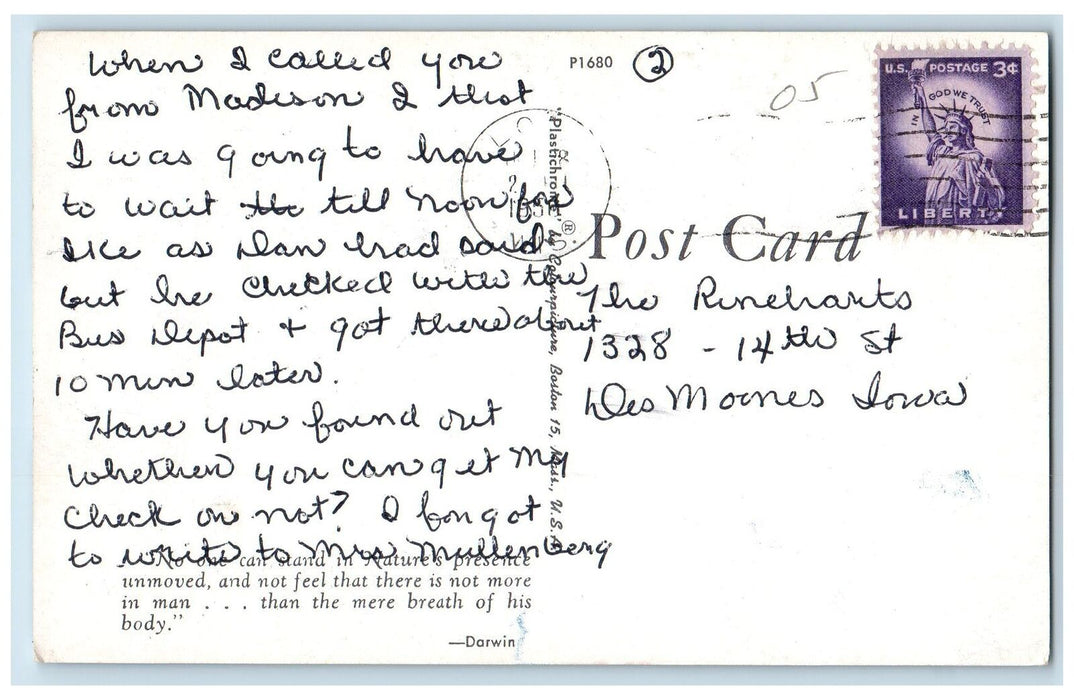 When I called you
from Madison I that
I was going to have
to wait the till noon for
Ike as Dan had said
but he checked with the
Bus Depot + got there about
10 min later.
Have you found out
whether you can get my
check or not? I forgot
to write to Mrs Mullenberg
"No one can stand in Nature's presence
unmoved, and not feel that there is not more
in man . . . than the mere breath of his
body."
—Darwin
P1680 2
05
"Plastichrome" ® by Colourpicture, Boston 15, Mass., U.S.A.
U.S. POSTAGE 3¢
IN GOD WE TRUST
LIBERTY
Post Card
The Rineharts
1328 - 14th St
Des Moines Iowa